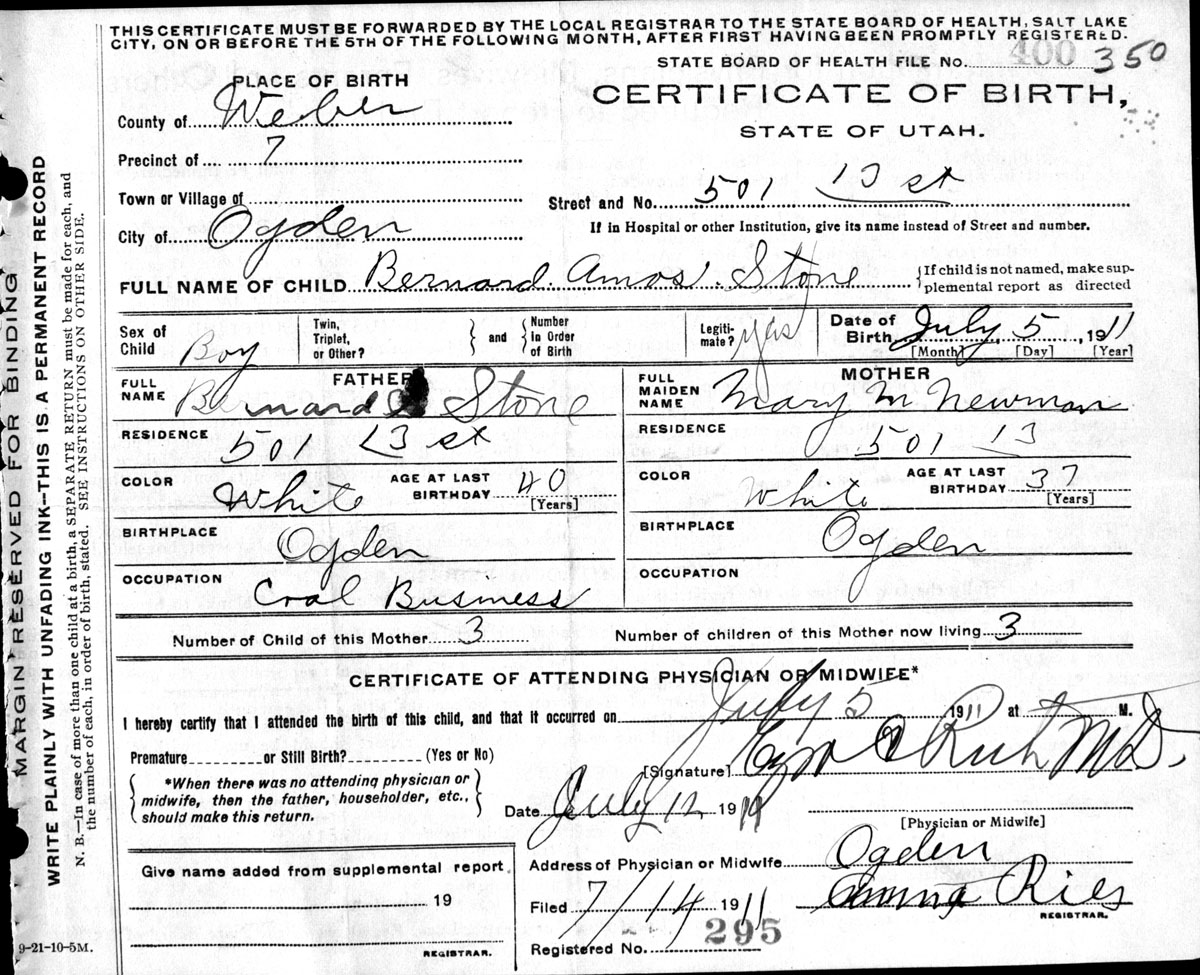 THIS CERTIFICATE MUST BE FORWARDED BY THE LOCAL REGISTRAR TO THE STATE BOARD OF HEALTH, SALT LAKE
CITY, ON OR BEFORE THE 5TH OF THE FOLLOWING MONTH, AFTER FIRST HAVING BEEN PROMPTLY REGISTERED.
STATE BOARD OF HEALTH FILE No. 400 350
PLACE OF BIRTH
CERTIFICATE OF BIRTH,
STATE OF UTAH.
County of Weber
Precinct of 7
Town or Village of
Street and No. 501 13 st
City of Ogden
If in Hospital or other Institution, give its name instead of Street and number.
FULL NAME OF CHILD Bernard Amos Stone {If child is not named, make sup-
plemental report as directed
Sex of Child Boy
Twin, Triplet, or Other? } and { Number In Order of Birth
Legiti-mate? yes
Date of Birth July 5, 1911
[Month] [Day] [Year]
FATHER
FULL NAME Bernard Stone
MOTHER
FULL MAIDEN NAME Mary M Newman
RESIDENCE 501 13 st
RESIDENCE 501 13
COLOR White AGE AT LAST BIRTHDAY 40 [Years]
COLOR White AGE AT LAST BIRTHDAY 37 [Years]
BIRTHPLACE Ogden
BIRTHPLACE Ogden
OCCUPATION Coal Business
OCCUPATION
Number of Child of this Mother 3 Number of children of this Mother now living 3
CERTIFICATE OF ATTENDING PHYSICIAN OR MIDWIFE*
I hereby certify that I attended the birth of this child, and that it occurred on July 5 1911 at M.
Premature or Still Birth? (Yes or No)
[Signature] Rich MD.
{ *When there was no attending physician or
midwife, then the father, householder, etc.,
should make this return. }
Date July 12 1911
[Physician or Midwife]
Address of Physician or Midwife Ogden
Give name added from supplemental report
19
REGISTRAR.
Filed 7/14 1911 Ries
REGISTRAR.
Registered No. 295
9-21-10-5M.
MARGIN RESERVED FOR BINDING
WRITE PLAINLY WITH UNFADING INK--THIS IS A PERMANENT RECORD
N. B.—In case of more than one child at a birth, a SEPARATE RETURN must be made for each, and
the number of each, in order of birth, stated. SEE INSTRUCTIONS ON OTHER SIDE.